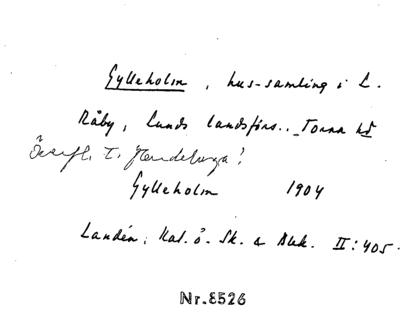 Gylleholm, hus-samling i L.
Råby, Lunds landsförs., Torna hd
Överfl. t. Hardeberga!
Gylleholm 1904
Landén, Kat. ö. Sk. & Blek. II:405.
Nr.8526